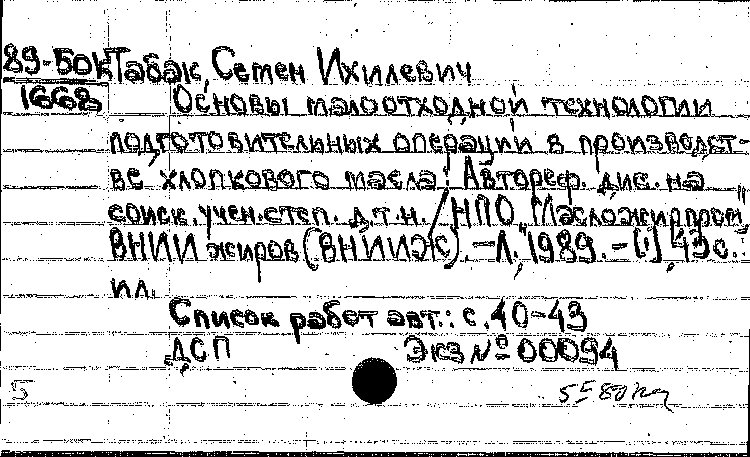 89-БОК Табак, Семен Ихилевич
1668 Основы малоотходной технологии
подготовительных операций в производст-
ве хлопкового масла: Автореф. дис. на
соиск. учен. степ. д.т.н. / НПО "Масложирпром",
ВНИИ жиров (ВНИИЖ). - Л., 1989. - [1], 43 с.:
ил.
Список работ авт.: с. 40-43
ДСП Экз № 00094
5